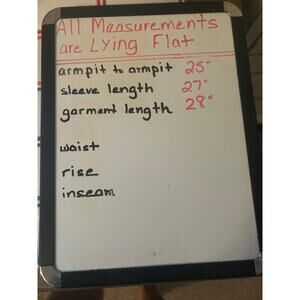 All Measurements
are Lying Flat
armpit to armpit 25"
sleeve length 27"
garment length 28"
waist
rise
inseam